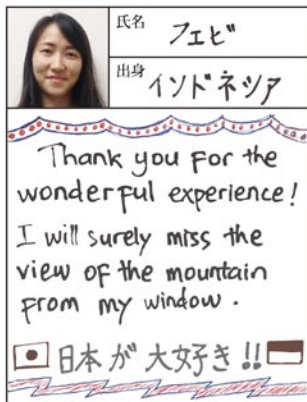 氏名 フェビ
出身 インドネシア
Thank you for the
wonderful experience!
I will surely miss the
view of the mountain
from my window.
日本が大好き!!